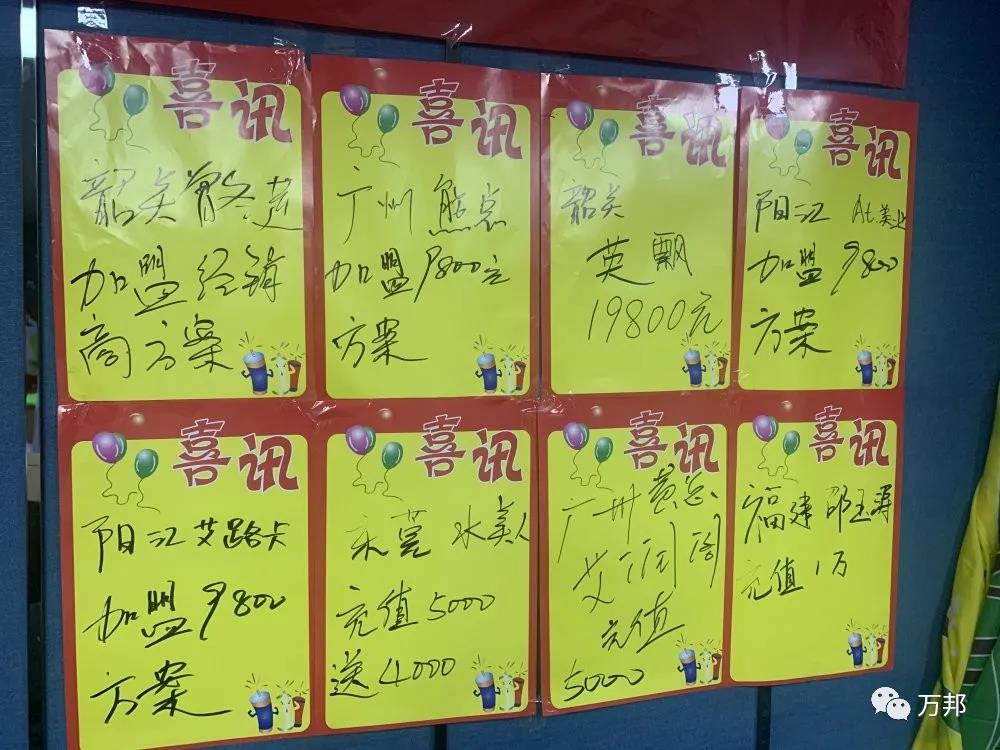 喜讯
韶关
加盟经销
商方案
喜讯
广州熊总
加盟9800元
方案
喜讯
韶关
英飘
19800元
喜讯
阳江 At.美业
加盟9800
方案
喜讯
阳江艾路卡
加盟9800
方案
喜讯
东莞 水美人
充值5000
送4000
喜讯
广州黄总
艾润阁
充值
5000
喜讯
福建邵玉涛
充值1万
万邦